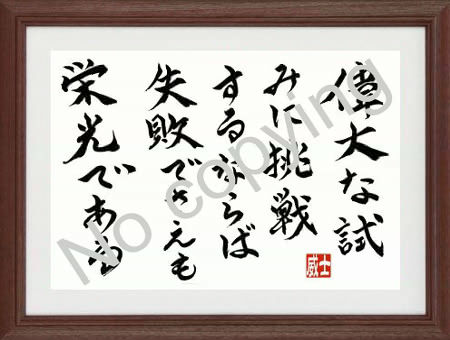 偉大な試
みに挑戦
するならば
失敗でさえも
栄光である
威士
No copying